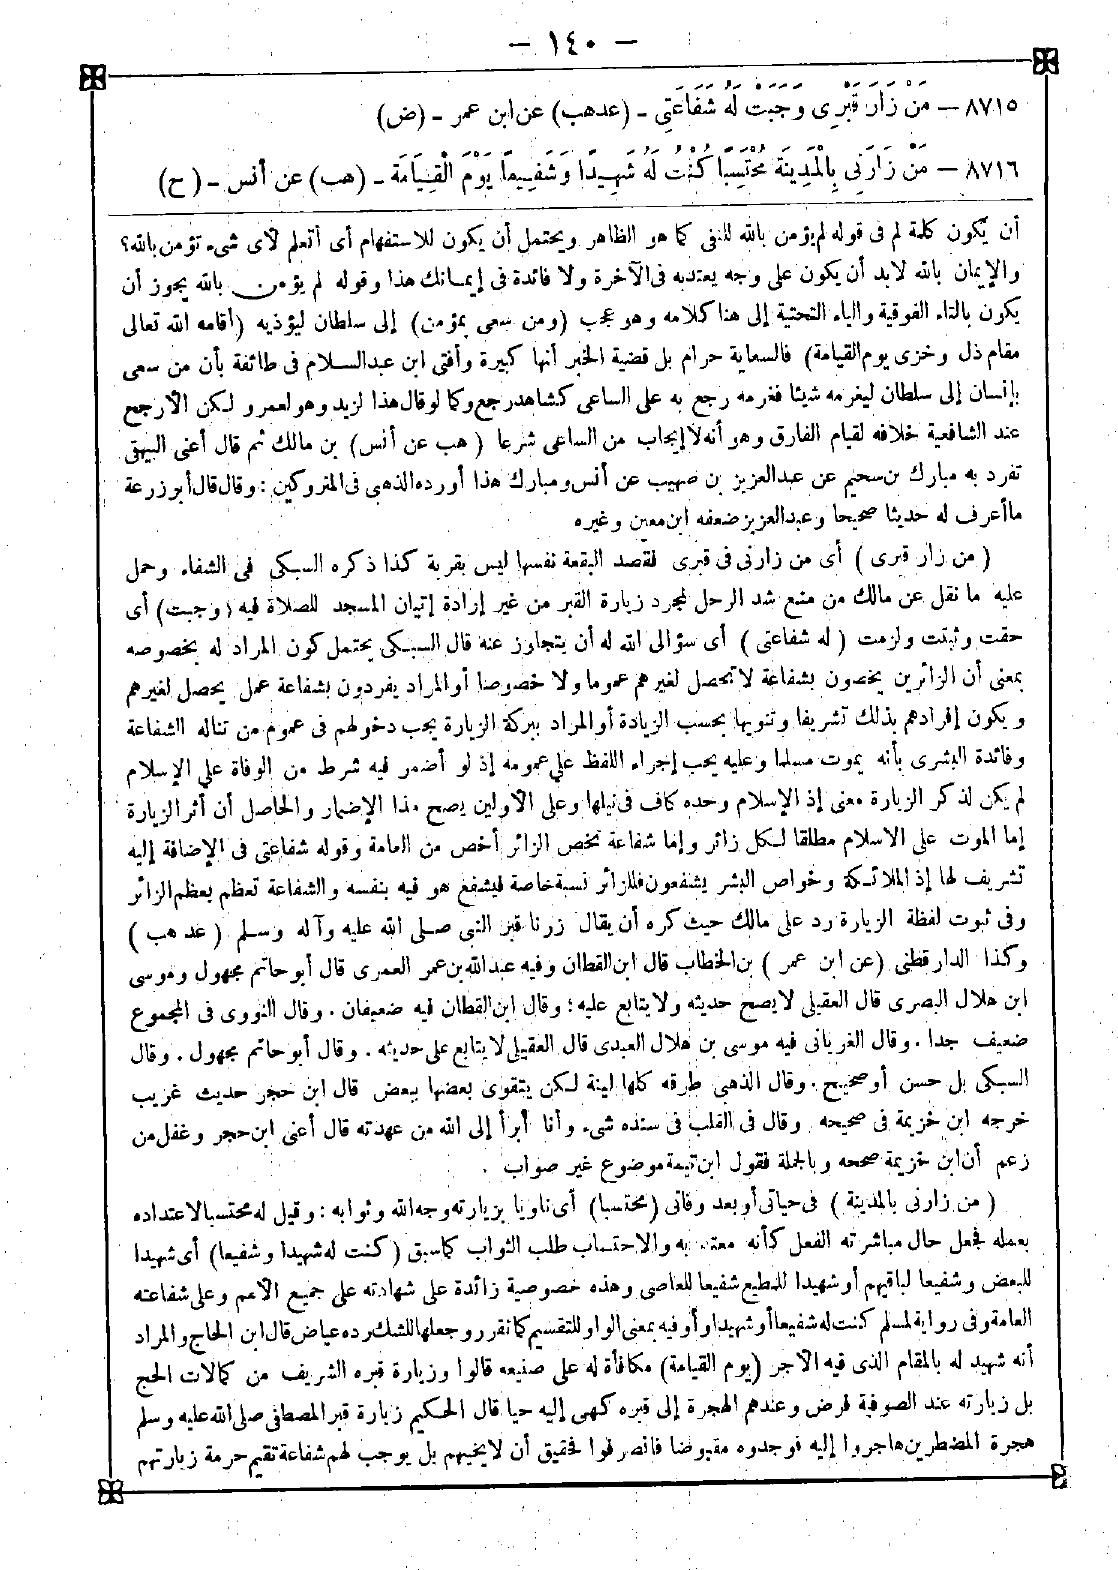 - ١٤٠ -
٨٧١٥ - مَنْ زَارَ قَبْرِى وَجَبَتْ لَهُ شَفَاعَتِى - (عد هب) عن ابن عمر - (ض)
٨٧١٦ - مَنْ زَارَنِى بِالْمَدِينَةِ مُحْتَسِبًا كُنْتُ لَهُ شَهِيدًا وَشَفِيعًا يَوْمَ الْقِيَامَةِ - (هب) عن أنس - (ح)
أن يكون كلمة لم فى قوله لم يؤمن بالله للنفى كما هو الظاهر ويحتمل أن يكون للاستفهام أى أتعلم لأى شىء تؤمن بالله؟
والإيمان بالله لابد أن يكون على وجه يعتد به فى الآخرة ولا فائدة فى إيمانك هذا وقوله لم يؤمن بالله يجوز أن
يكون بالتاء الفوقية والياء التحتية إلى هنا كلامه وهو عجب (ومن سعى بمؤمن) إلى سلطان ليؤذيه (أقامه الله تعالى
مقام ذل وخزى يوم القيامة) فالسعاية حرام بل قضية الخبر أنها كبيرة وأفتى ابن عبد السلام فى طائفة بأن من سعى
بإنسان إلى سلطان ليغرمه شيئا فغرمه رجع به على الساعى كشاهد رجع وكما لو قال هذا لزيد وهو لعمرو لكن الأرجح
عند الشافعية خلافه لقيام الفارق وهو أنه لا إيجاب من الساعى شرعا (هب عن أنس) بن مالك ثم قال أعنى البيهقى
تفرد به مبارك بن سحيم عن عبد العزيز بن صهيب عن أنس ومبارك هذا أورده الذهبى فى المتروكين : وقال قال أبو زرعة
ما أعرف له حديثا صحيحا وعبد العزيز ضعفه ابن معين وغيره
(من زار قبرى) أى من زارنى فى قبرى فقصد البقعة نفسها ليس بقربة كذا ذكره السبكى فى الشفاء وحمل
عليه ما نقل عن مالك من منع شد الرحل لمجرد زيارة القبر من غير إرادة إتيان المسجد للصلاة فيه (وجبت) أى
حقت وثبتت ولزمت (له شفاعتى) أى سؤالى الله له أن يتجاوز عنه قال السبكى يحتمل كون المراد له بخصوصه
بمعنى أن الزائرين يخصون بشفاعة لا تحصل لغيرهم عموما ولا خصوصا أو المراد يفردون بشفاعة عمل يحصل لغيرهم
ويكون إفرادهم بذلك تشريفا وتنويها بحسب الزيادة أو المراد ببركة الزيارة يجب دخولهم فى عموم من تناله الشفاعة
وفائدة البشرى بأنه يموت مسلما وعليه يجب إجراء اللفظ على عمومه إذ لو أضمر فيه شرط من الوفاة على الإسلام
لم يكن لذكر الزيارة معنى إذ الإسلام وحده كاف فى نيلها وعلى الأولين يصح هذا الإضمار والحاصل أن أثر الزيارة
إما الموت على الاسلام مطلقا لكل زائر وإما شفاعة تخص الزائر أخص من العامة وقوله شفاعتى فى الإضافة إليه
تشريف لها إذ الملائكة وخواص البشر يشفعون فللزائر نسبة خاصة فيشفع هو فيه بنفسه والشفاعة تعظم بعظم الزائر
وفى ثبوت لفظة الزيارة رد على مالك حيث كره أن يقال زرنا قبر النبى صلى الله عليه وآله وسلم (عد هب)
وكذا الدارقطنى (عن ابن عمر) بن الخطاب قال ابن القطان وفيه عبد الله بن عمر العمرى قال أبو حاتم مجهول وموسى
ابن هلال البصرى قال العقيلى لا يصح حديثه ولا يتابع عليه ؛ وقال ابن القطان فيه ضعيفان . وقال النووى فى المجموع
ضعيف جدا . وقال الغريانى فيه موسى بن هلال العبدى قال العقيلى لا يتابع على حديثه . وقال أبو حاتم مجهول . وقال
السبكى بل حسن أو صحيح . وقال الذهبى طرقه كلها لينة لكن يتقوى بعضها ببعض قال ابن حجر حديث غريب
خرجه ابن خزيمة فى صحيحه وقال فى القلب فى سنده شىء وأنا أبرأ إلى الله من عهدته قال أعنى ابن حجر وغفل من
زعم أن ابن خزيمة صححه وبالجملة فقول ابن تيمة موضوع غير صواب .
(من زارنى بالمدينة) فى حياتى أو بعد وفاتى (محتسبا) أى ناويا بزيارته وجه الله وثوابه : وقيل له محتسبا لاعتداده
بعمله فجعل حال مباشرته الفعل كأنه معتد به والاحتساب طلب الثواب كما سبق (كنت له شهيدا وشفيعا) أى شهيدا
للبعض وشفيعا لباقيهم أو شهيدا للمطيع شفيعا للعاصى وهذه خصوصية زائدة على شهادته على جميع الأمم وعلى شفاعته
العامة وفى رواية لمسلم كنت له شفيعا أو شهيدا وأو فيه بمعنى الواو للتقسيم كما تقرر وجعلها للشك رده عياض قال ابن الحاج والمراد
أنه شهيد له بالمقام الذى فيه الأجر (يوم القيامة) مكافأة له على صنيعه قالوا وزيارة قبره الشريف من كمالات الحج
بل زيارته عند الصوفية فرض وعندهم الهجرة إلى قبره كهى إليه حيا قال الحكيم زيارة قبر المصطفى صلى الله عليه وسلم
هجرة المضطرين هاجروا إليه فوجدوه مقبوضا فانصرفوا فحقيق أن لا يخيبهم بل يوجب لهم شفاعة تقيم حرمة زيارتهم